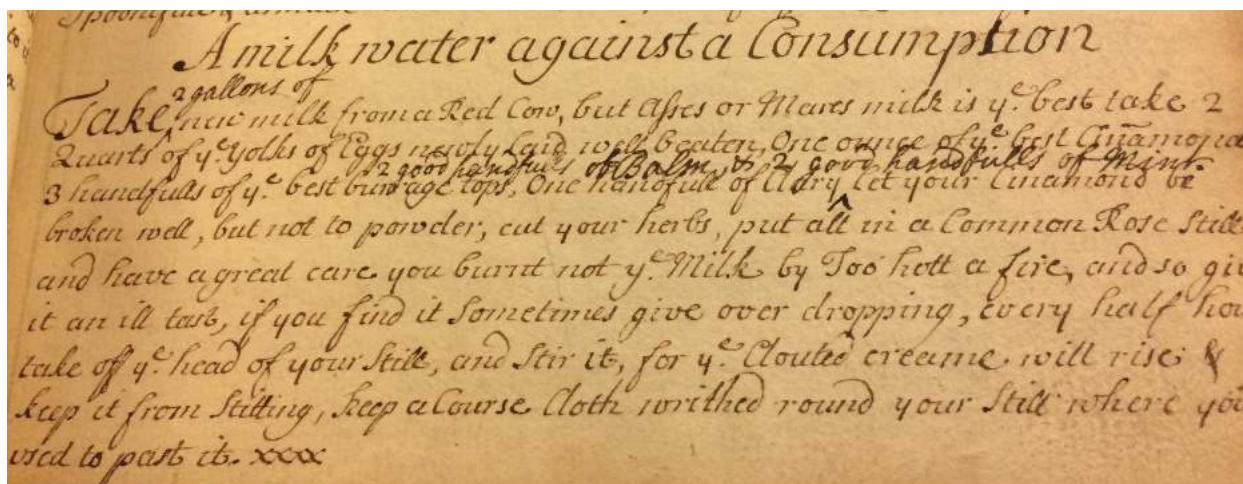 A milk water against a Consumption
2 gallons of
Take new milk from a Red Cow, but Asses or Mares milk is yᵉ best take 2
Quarts of yᵉ Yolks of Eggs newly Laid well beaten, One ounce of yᵉ best Cinamond
2 good handfulls of Balm, & 2 good handfulls of Mint
3 handfulls of yᵉ best burrage tops, One handfull of Clary let your Cinamond be
broken well, but not to powder, cut your herbs, put all in a Common Rose Still
and have a great care you burnt not yᵉ Milk by Too hott a fire, and so giv
it an ill tast, if you find it Sometimes give over dropping, every half hou
take off yᵉ head of your Still, and Stir it, for yᵉ Clouted creame will rise &
keep it from Stilling, keep a Course Cloth writhed round your Still where you
used to past it. xxx